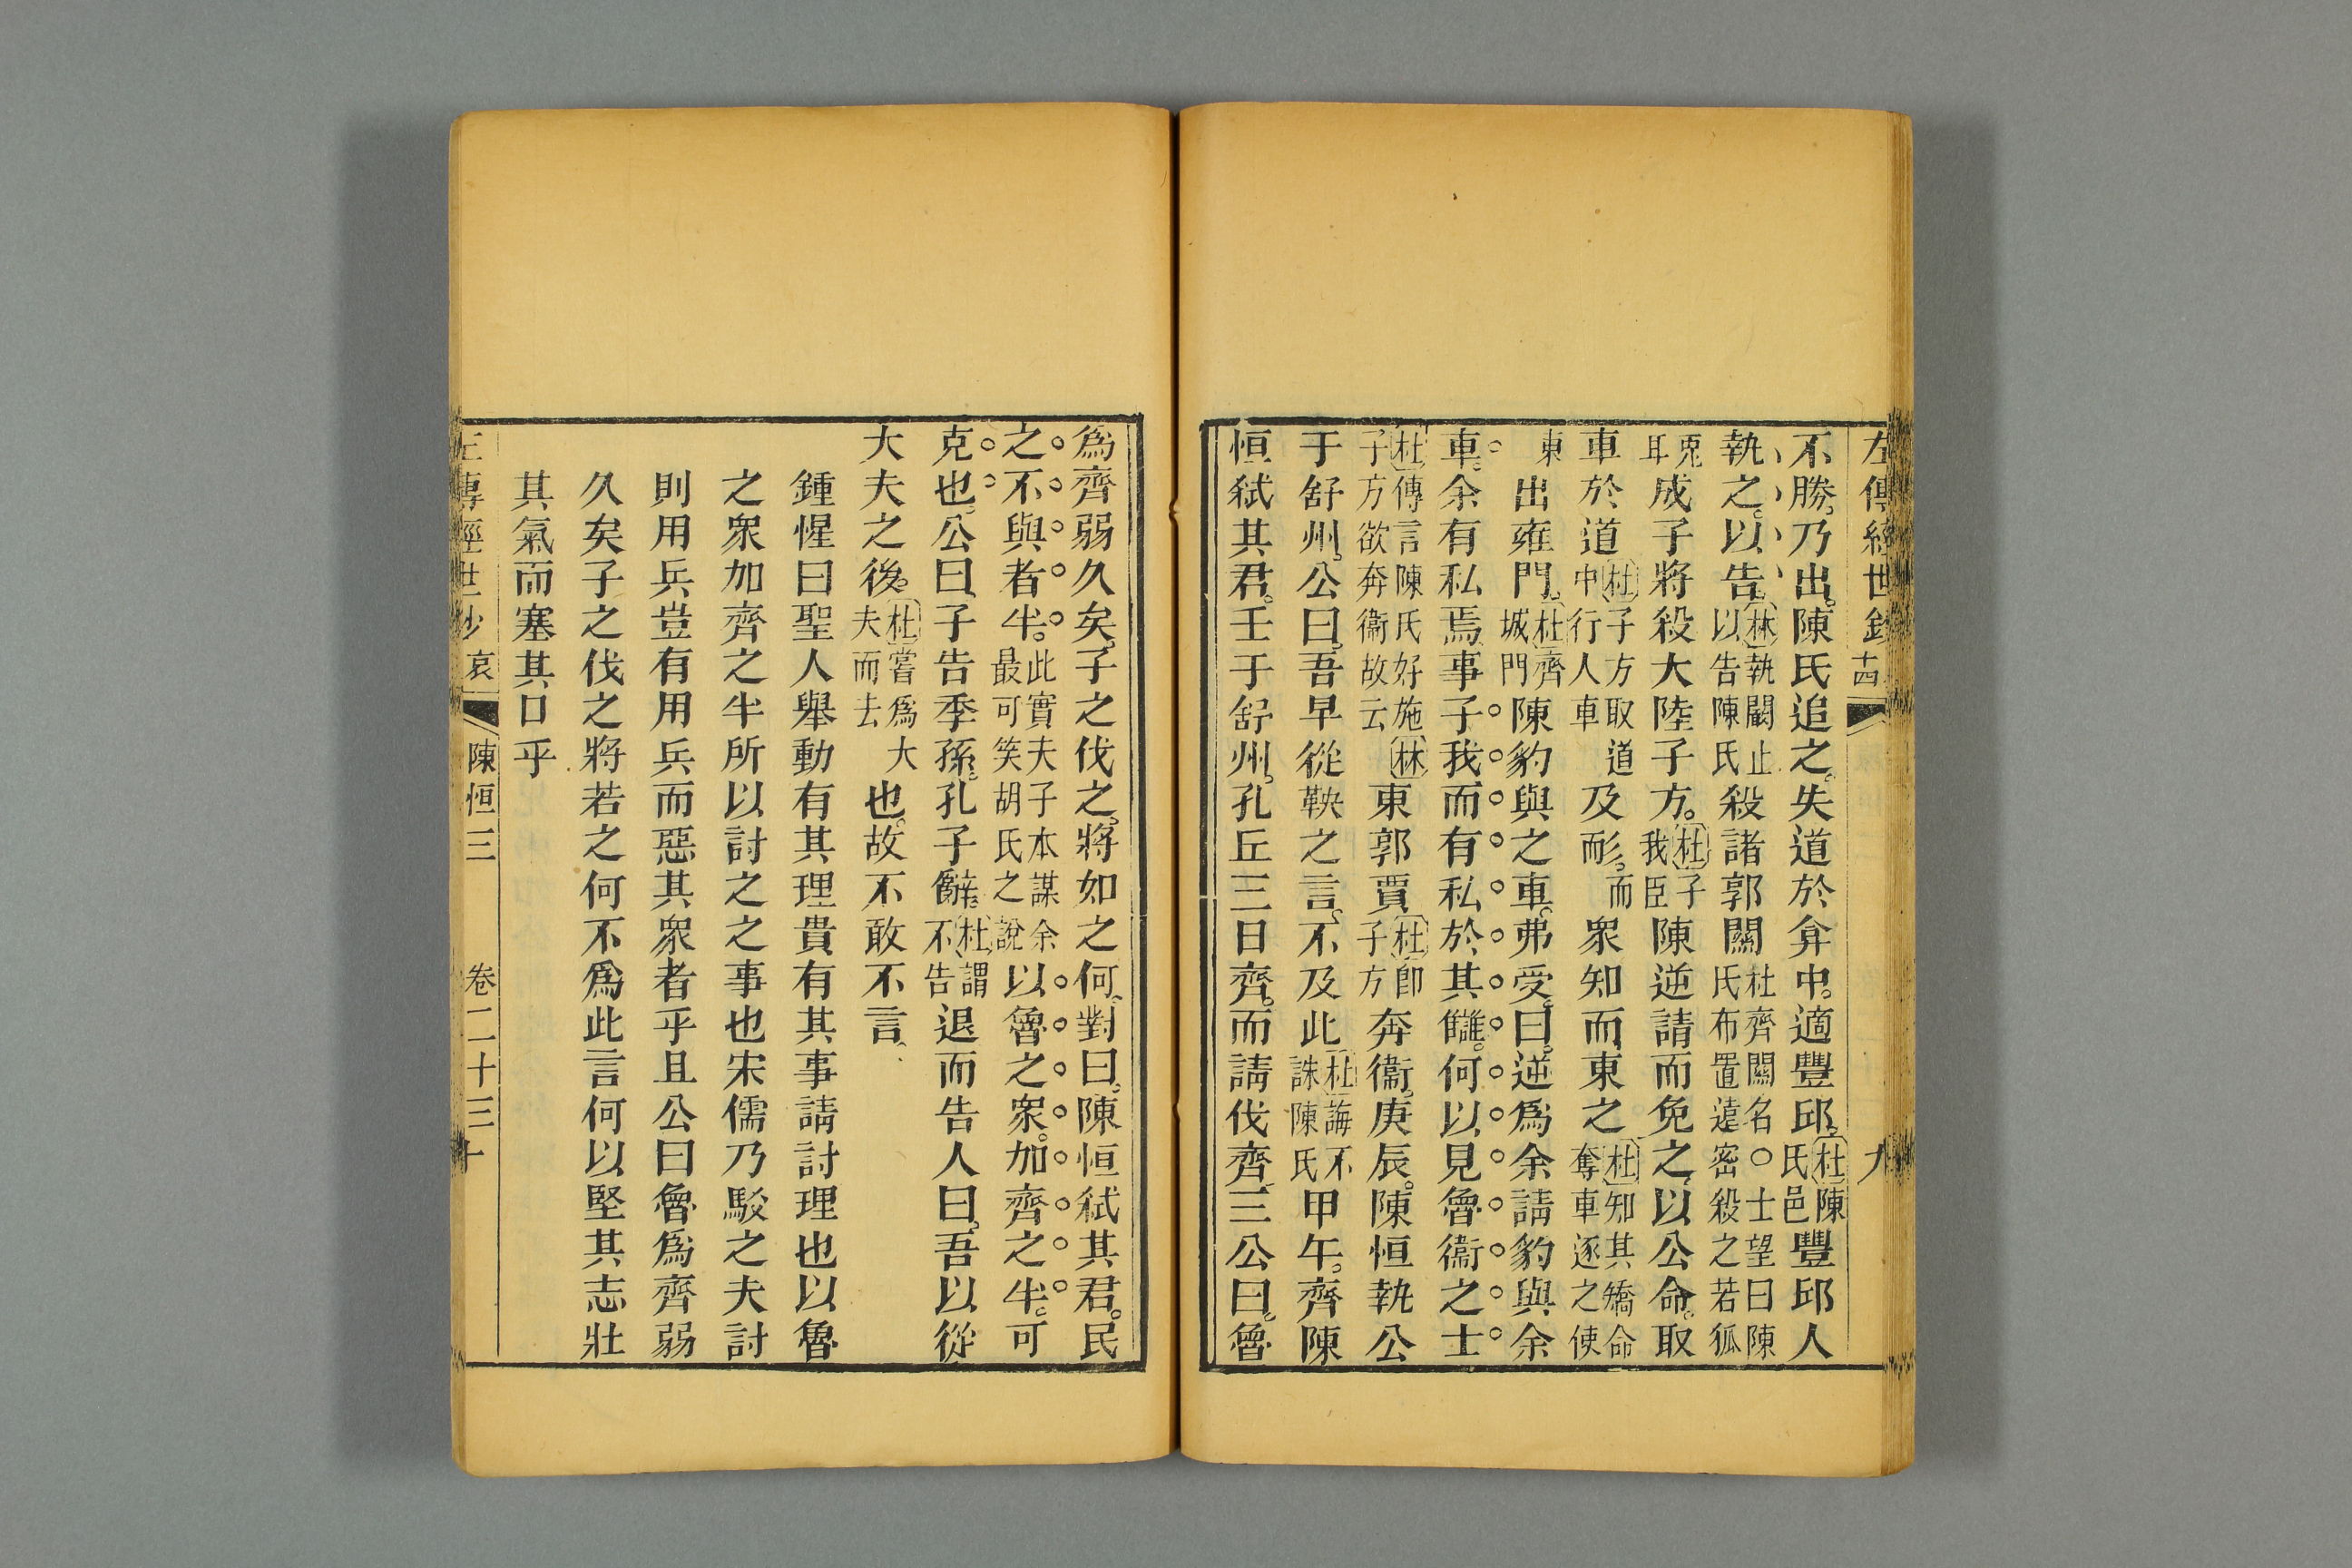 左傳經世鈔 十四 九
不勝。乃出。陳氏追之。失道於弇中。適豐邱。杜陳氏邑豐邱人
執之。以告。林執闞止以告陳氏殺諸郭關杜齊關名○士望曰陳氏布置遠密殺之若狐
兎耳成子將殺大陸子方。杜子我臣陳逆請而免之。以公命。取
車於道杜子方取道中行人車及耏。而衆知而東之杜知其矯命奪車逐之使
東出雍門。杜齊城門陳豹與之車。弗受。曰。逆爲余請豹與余
車。余有私焉。事子我而有私於其讎。何以見魯衞之士
杜傳言陳氏好施林子方欲奔衞故云東郭賈杜卽子方奔衞。庚辰。陳恒執公
于舒州。公曰。吾早從鞅之言。不及此杜誨不誅陳氏甲午。齊陳
恒弑其君。壬于舒州。孔丘三日齊。而請伐齊。三公曰。魯
爲齊弱久矣。子之伐之。將如之何。對曰。陳恒弑其君。民
之不與者半。此實夫子本謀余最可笑胡氏之說以魯之衆。加齊之半。可
克也。公曰。子告季孫。孔子辭。杜謂不告退而告人曰。吾以從
大夫之後。杜嘗爲大夫而去也。故不敢不言。
鍾惺曰聖人舉動有其理貴有其事請討理也以魯
之衆加齊之半所以討之之事也宋儒乃駁之夫討
則用兵豈有用兵而惡其衆者乎且公曰魯爲齊弱
久矣子之伐之將若之何不爲此言何以堅其志壯
其氣而塞其口乎
左傳經世鈔 哀 陳恒三 卷二十三 十